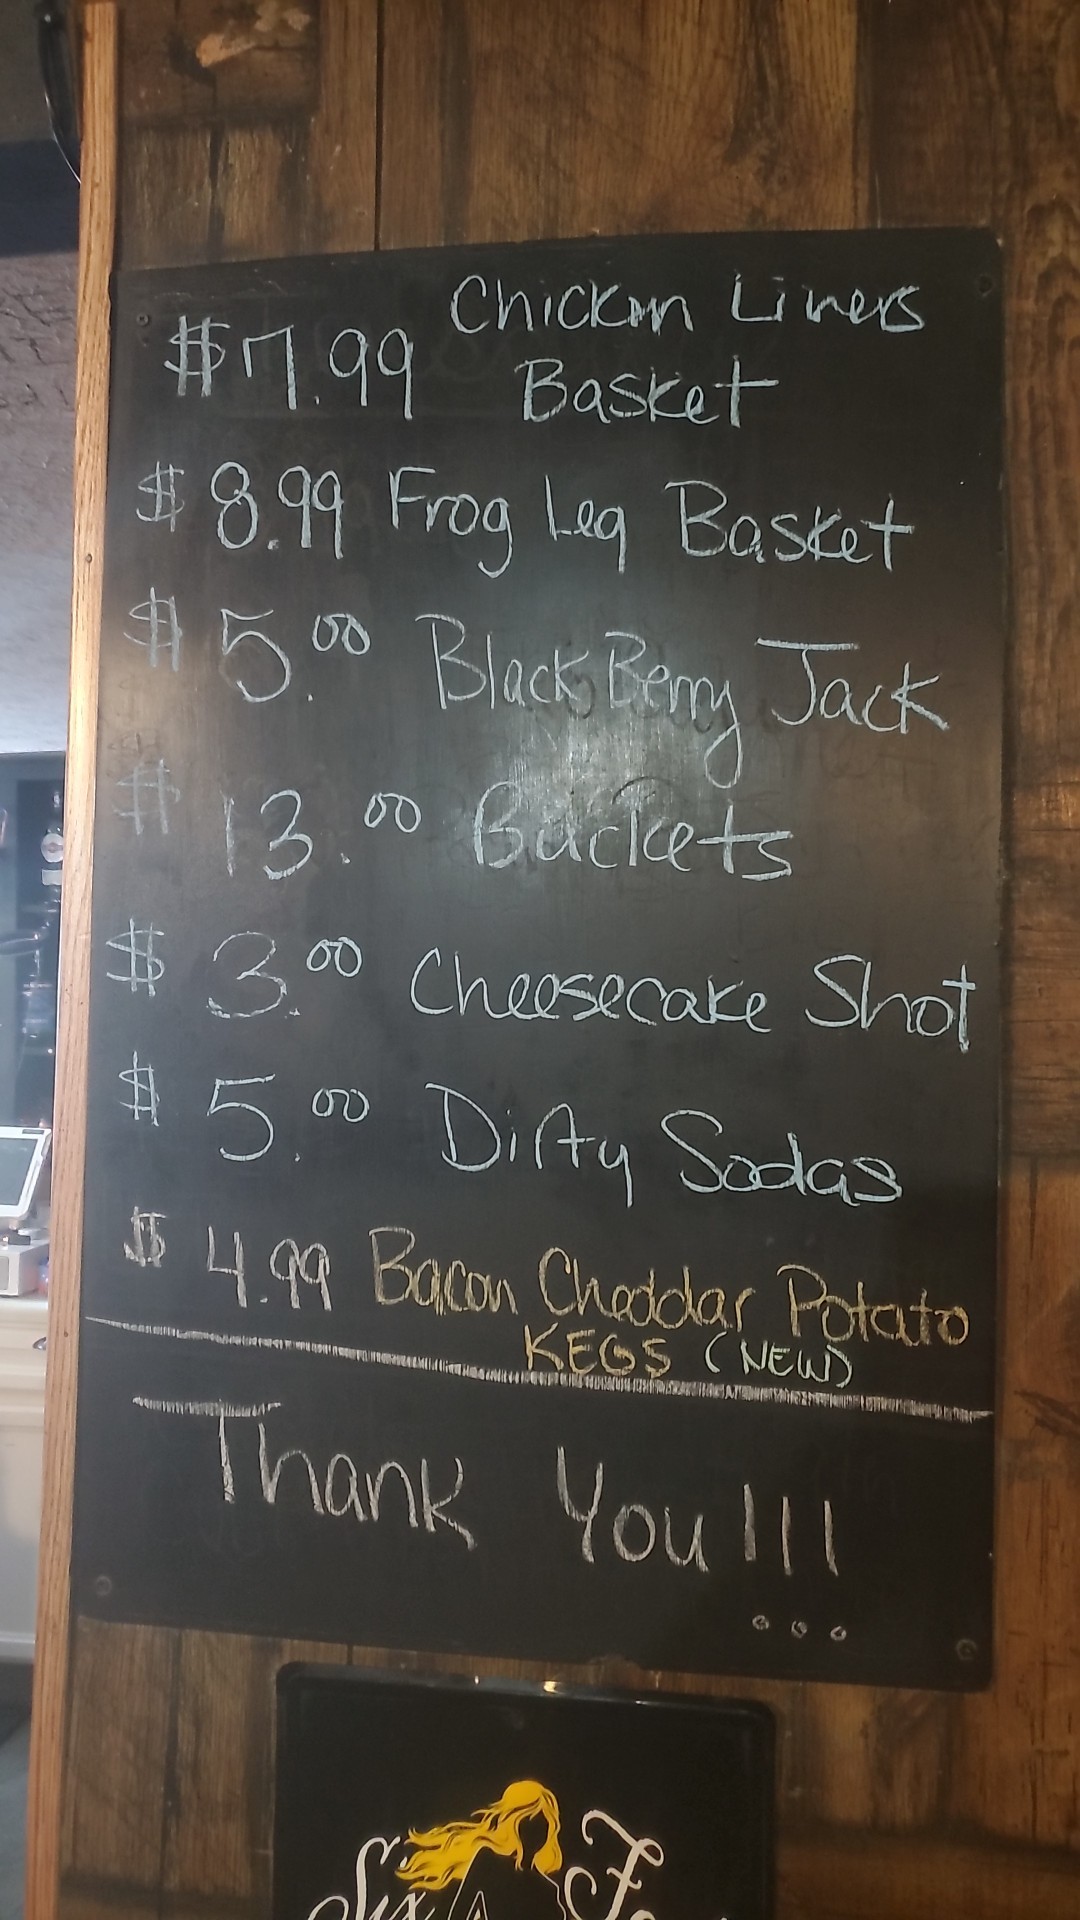 $7.99 Chicken Livers
Basket
$8.99 Frog Leg Basket
$5.00 BlackBerry Jack
$13.00 Buckets
$3.00 Cheesecake Shot
$5.00 Dirty Sodas
$4.99 Bacon Cheddar Potato
KEGS (NEW)
Thank You!!!
Six